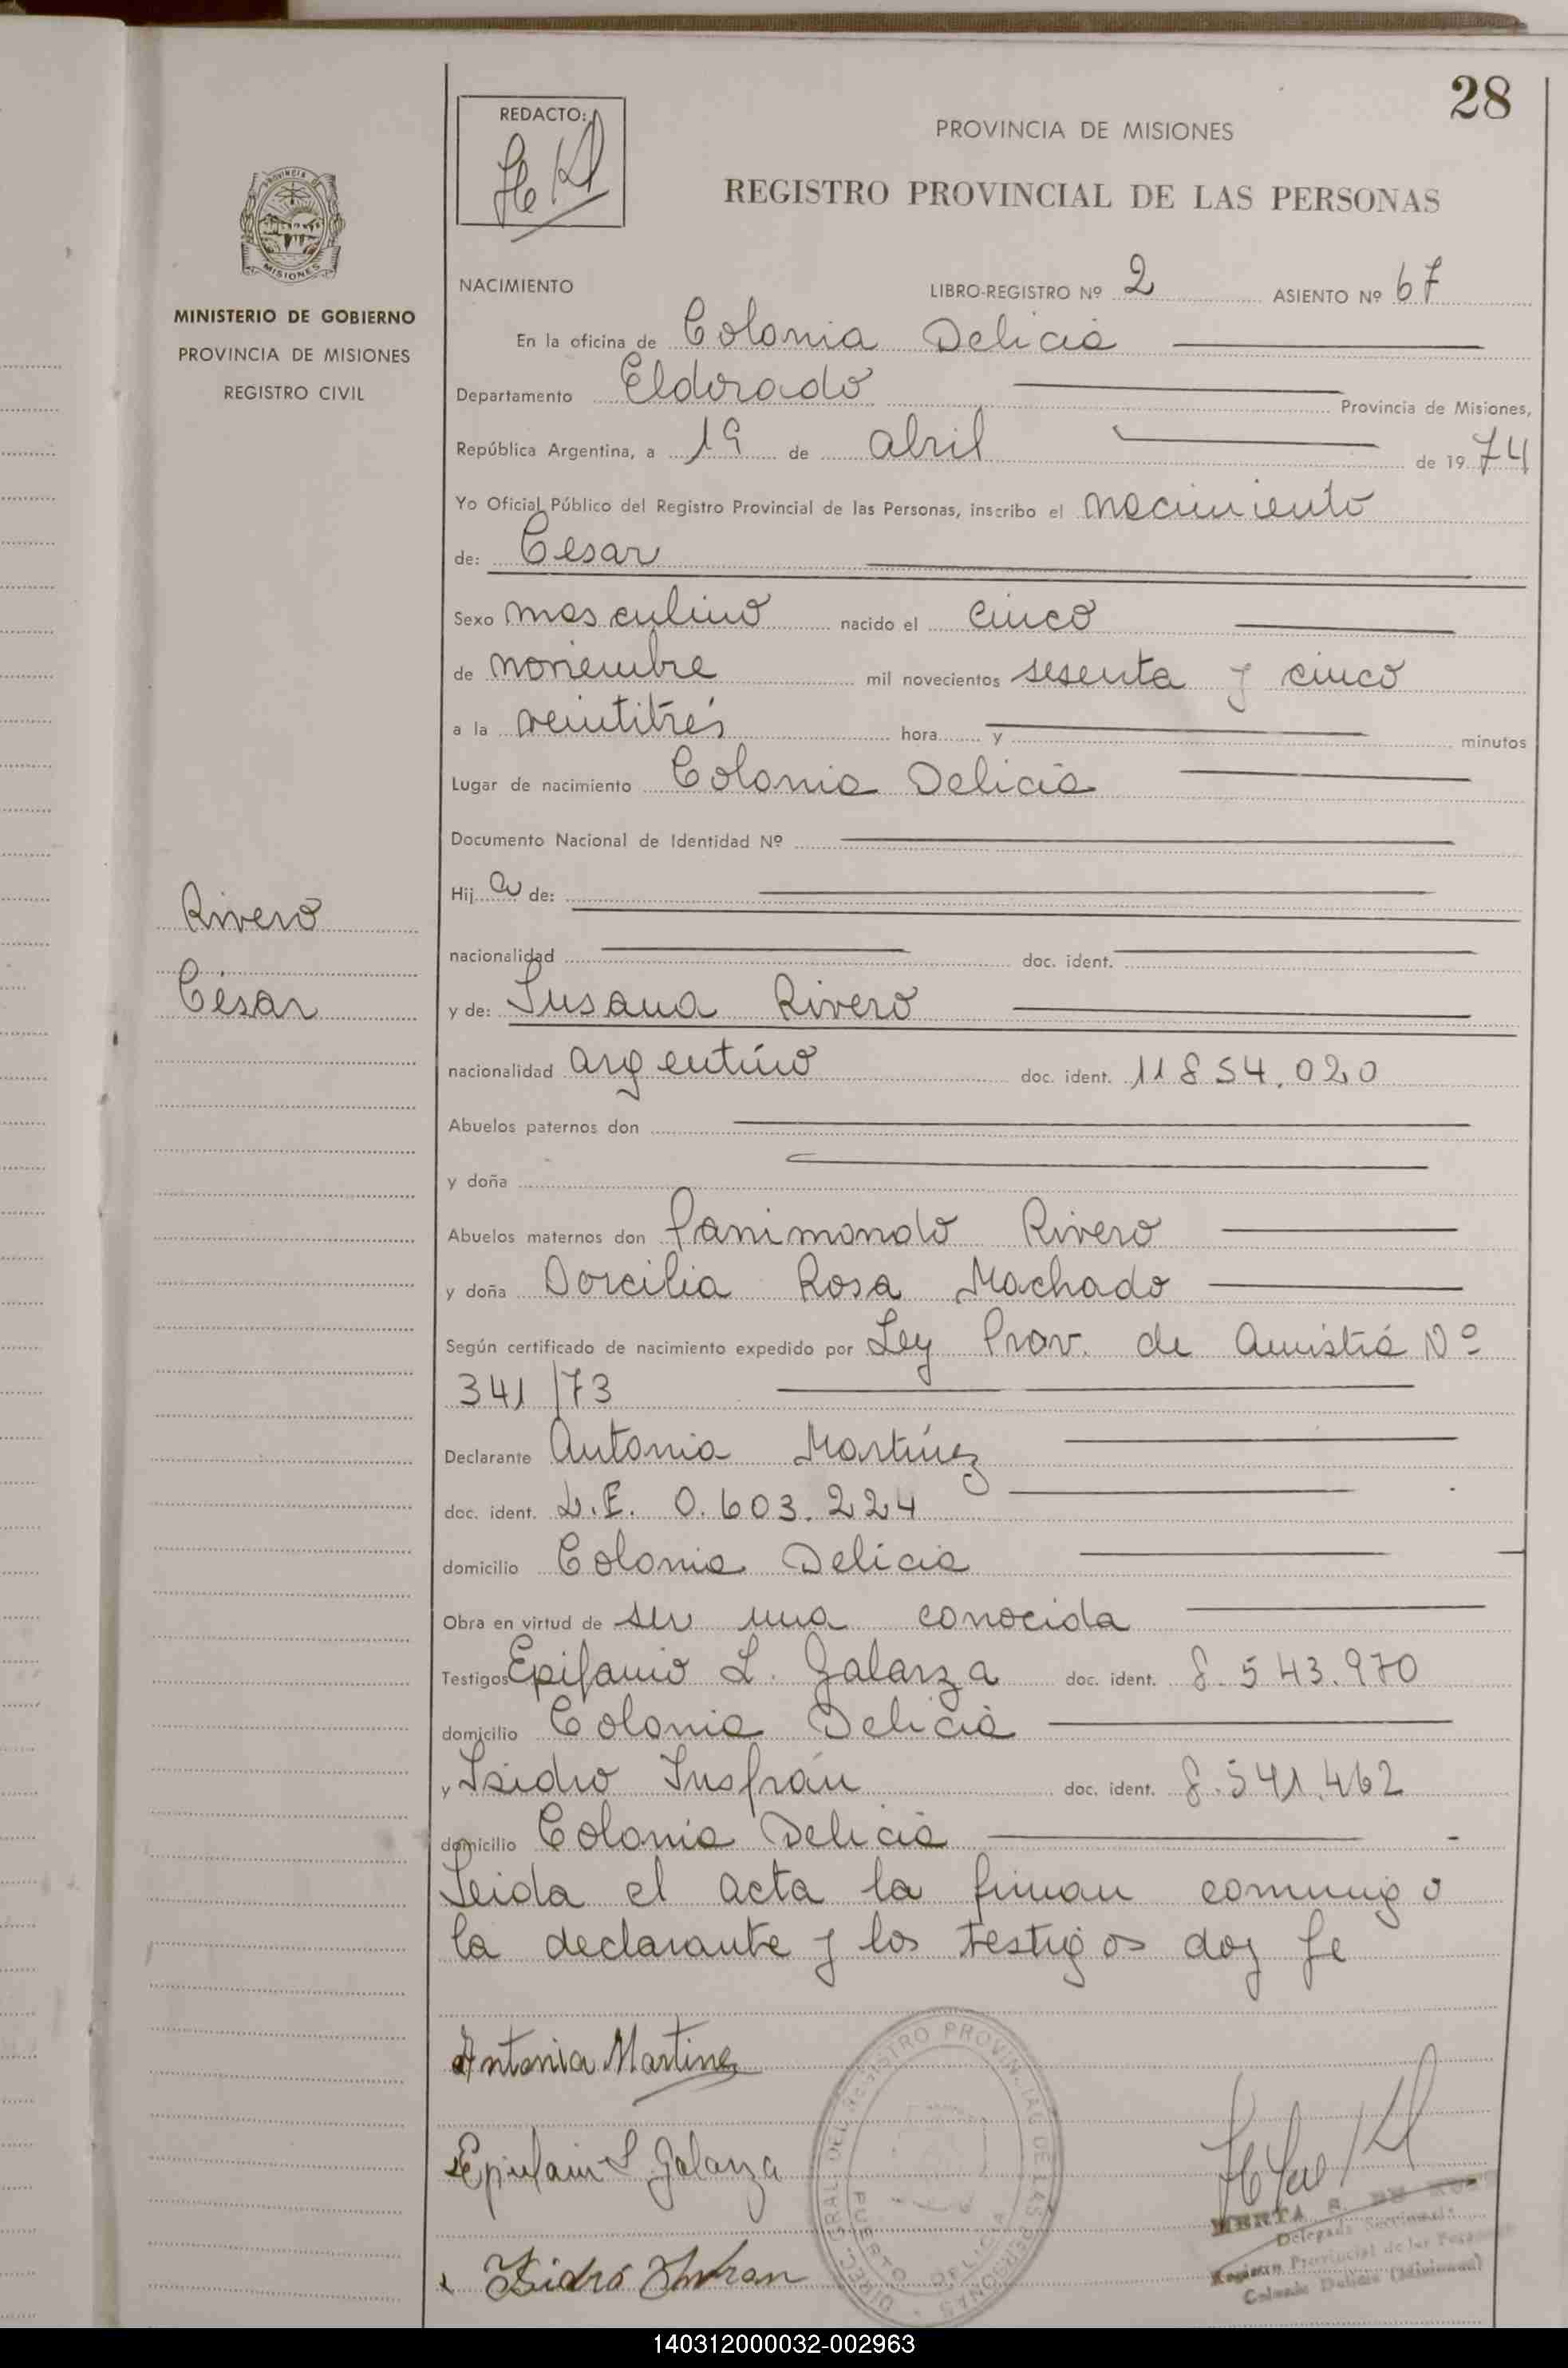 28
REDACTO:
PROVINCIA DE MISIONES
REGISTRO PROVINCIAL DE LAS PERSONAS
PROVINCIA DE
MISIONES
MINISTERIO DE GOBIERNO
PROVINCIA DE MISIONES
REGISTRO CIVIL
NACIMIENTO LIBRO-REGISTRO Nº 2 ASIENTO Nº 67
En la oficina de Colonia Delicia
Departamento Eldorado Provincia de Misiones,
República Argentina, a 19 de abril de 1974
Yo Oficial Público del Registro Provincial de las Personas, inscribo el nacimiento
de: Cesar
Sexo masculino nacido el cinco
de noviembre mil novecientos sesenta y cinco
a la veintitrés hora y minutos
Lugar de nacimiento Colonia Delicia
Documento Nacional de Identidad Nº
Hij o de:
Rivero
nacionalidad doc. ident.
César
y de: Susana Rivero
nacionalidad argentino doc. ident. 11854.020
Abuelos paternos don
y doña
Abuelos maternos don Rivero
y doña Dorcilia Rosa Machado
Según certificado de nacimiento expedido por Ley Prov. de Amistiá Nº
341/73
Declarante Antonia Martínez
doc. ident. L.E. 0.603.224
domicilio Colonia Delicia
Obra en virtud de ser una conocida
Testigos Epifanio L. Galarza doc. ident. 8.543.970
domicilio Colonia Delicia
y Isidro Insfrán doc. ident. 8.541.462
domicilio Colonia Delicia
Leida el acta la firman conmigo
la declarante y los testigos doy fe
Antonia Martinez
Epifanio L Galarza
Isidro Insfran
DIREC. GRAL. DEL REGISTRO PROVINCIAL DE LAS PERSONAS
PUERTO DELICIA
Delegada Seccional
Registro Provincial de las Personas
Colonia Delicia (Misiones)
140312000032-002963